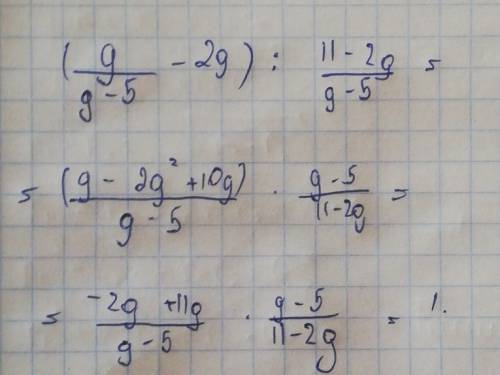 ( g / g - 5 - 2g ) : 11 - 2g / g - 5 =
= (g - 2g² + 10g) / g - 5 · g - 5 / 11 - 2g =
= -2g + 11g / g - 5 · g - 5 / 11 - 2g = 1.